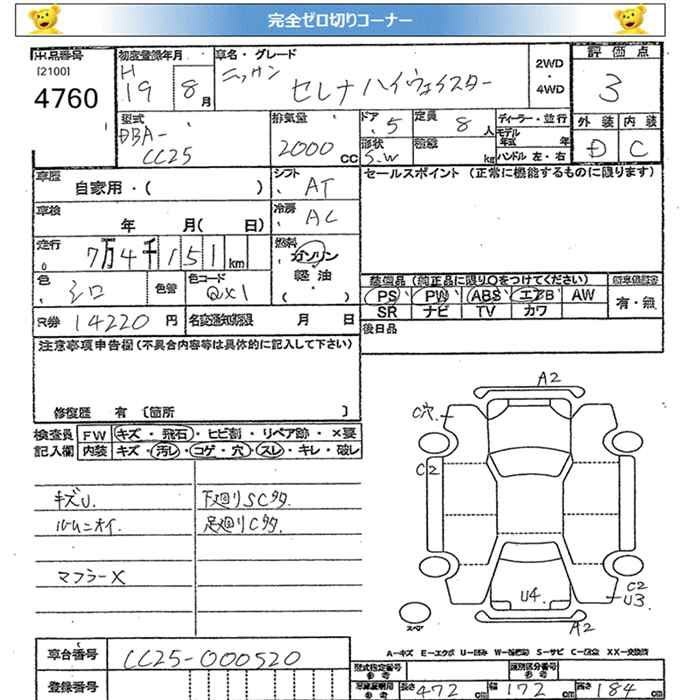 完全ゼロ切りコーナー
出品番号
[2100]
4760
初度登録年月
H
19 8月
車名・グレード
ニッサン セレナハイウェイスター
2WD
・
4WD
評価点
3
型式
DBA-
CC25
排気量
2000 cc
ドア 5
定員 8人
形状 S.W
積載 kg
ディーラー・並行
モデル
年式 年
ハンドル 左・右
外装 内装
D C
車歴
自家用・( )
シフト AT
車検
年 月( 日)
冷房 AC
走行
7万4千151km
燃料
ガソリン
軽油
( )
色 シロ 色替
色コード QX1
R券 14220 円
名変通知期限 月 日
セールスポイント (正常に機能するものに限ります)
装備品 (純正品に限り〇をつけてください)
PS PW ABS エアB AW
SR ナビ TV カワ
有・無
後日品
注意事項申告欄 (不具合内容等は具体的に記入して下さい)
修復歴 有 [箇所 ]
検査員
記入欄
FW キズ・飛石・ヒビ割・リペア跡・×要
内装 キズ・汚レ・コゲ・穴・スレ・キレ・破レ
キズU.
ルームニオイ.
マフラーX
下廻りSC多.
足廻りC多.
A2
C穴
C2
U4
C2
U3
A2
スペア
A-キズ E-エクボ U-凹み W-補修跡 S-サビ C-腐食 XX-交換済
車台番号 CC25-000520
登録番号
型式指定番号
参考
類別区分番号
参考
長さ 472 cm
幅 172 cm
高さ 184 cm